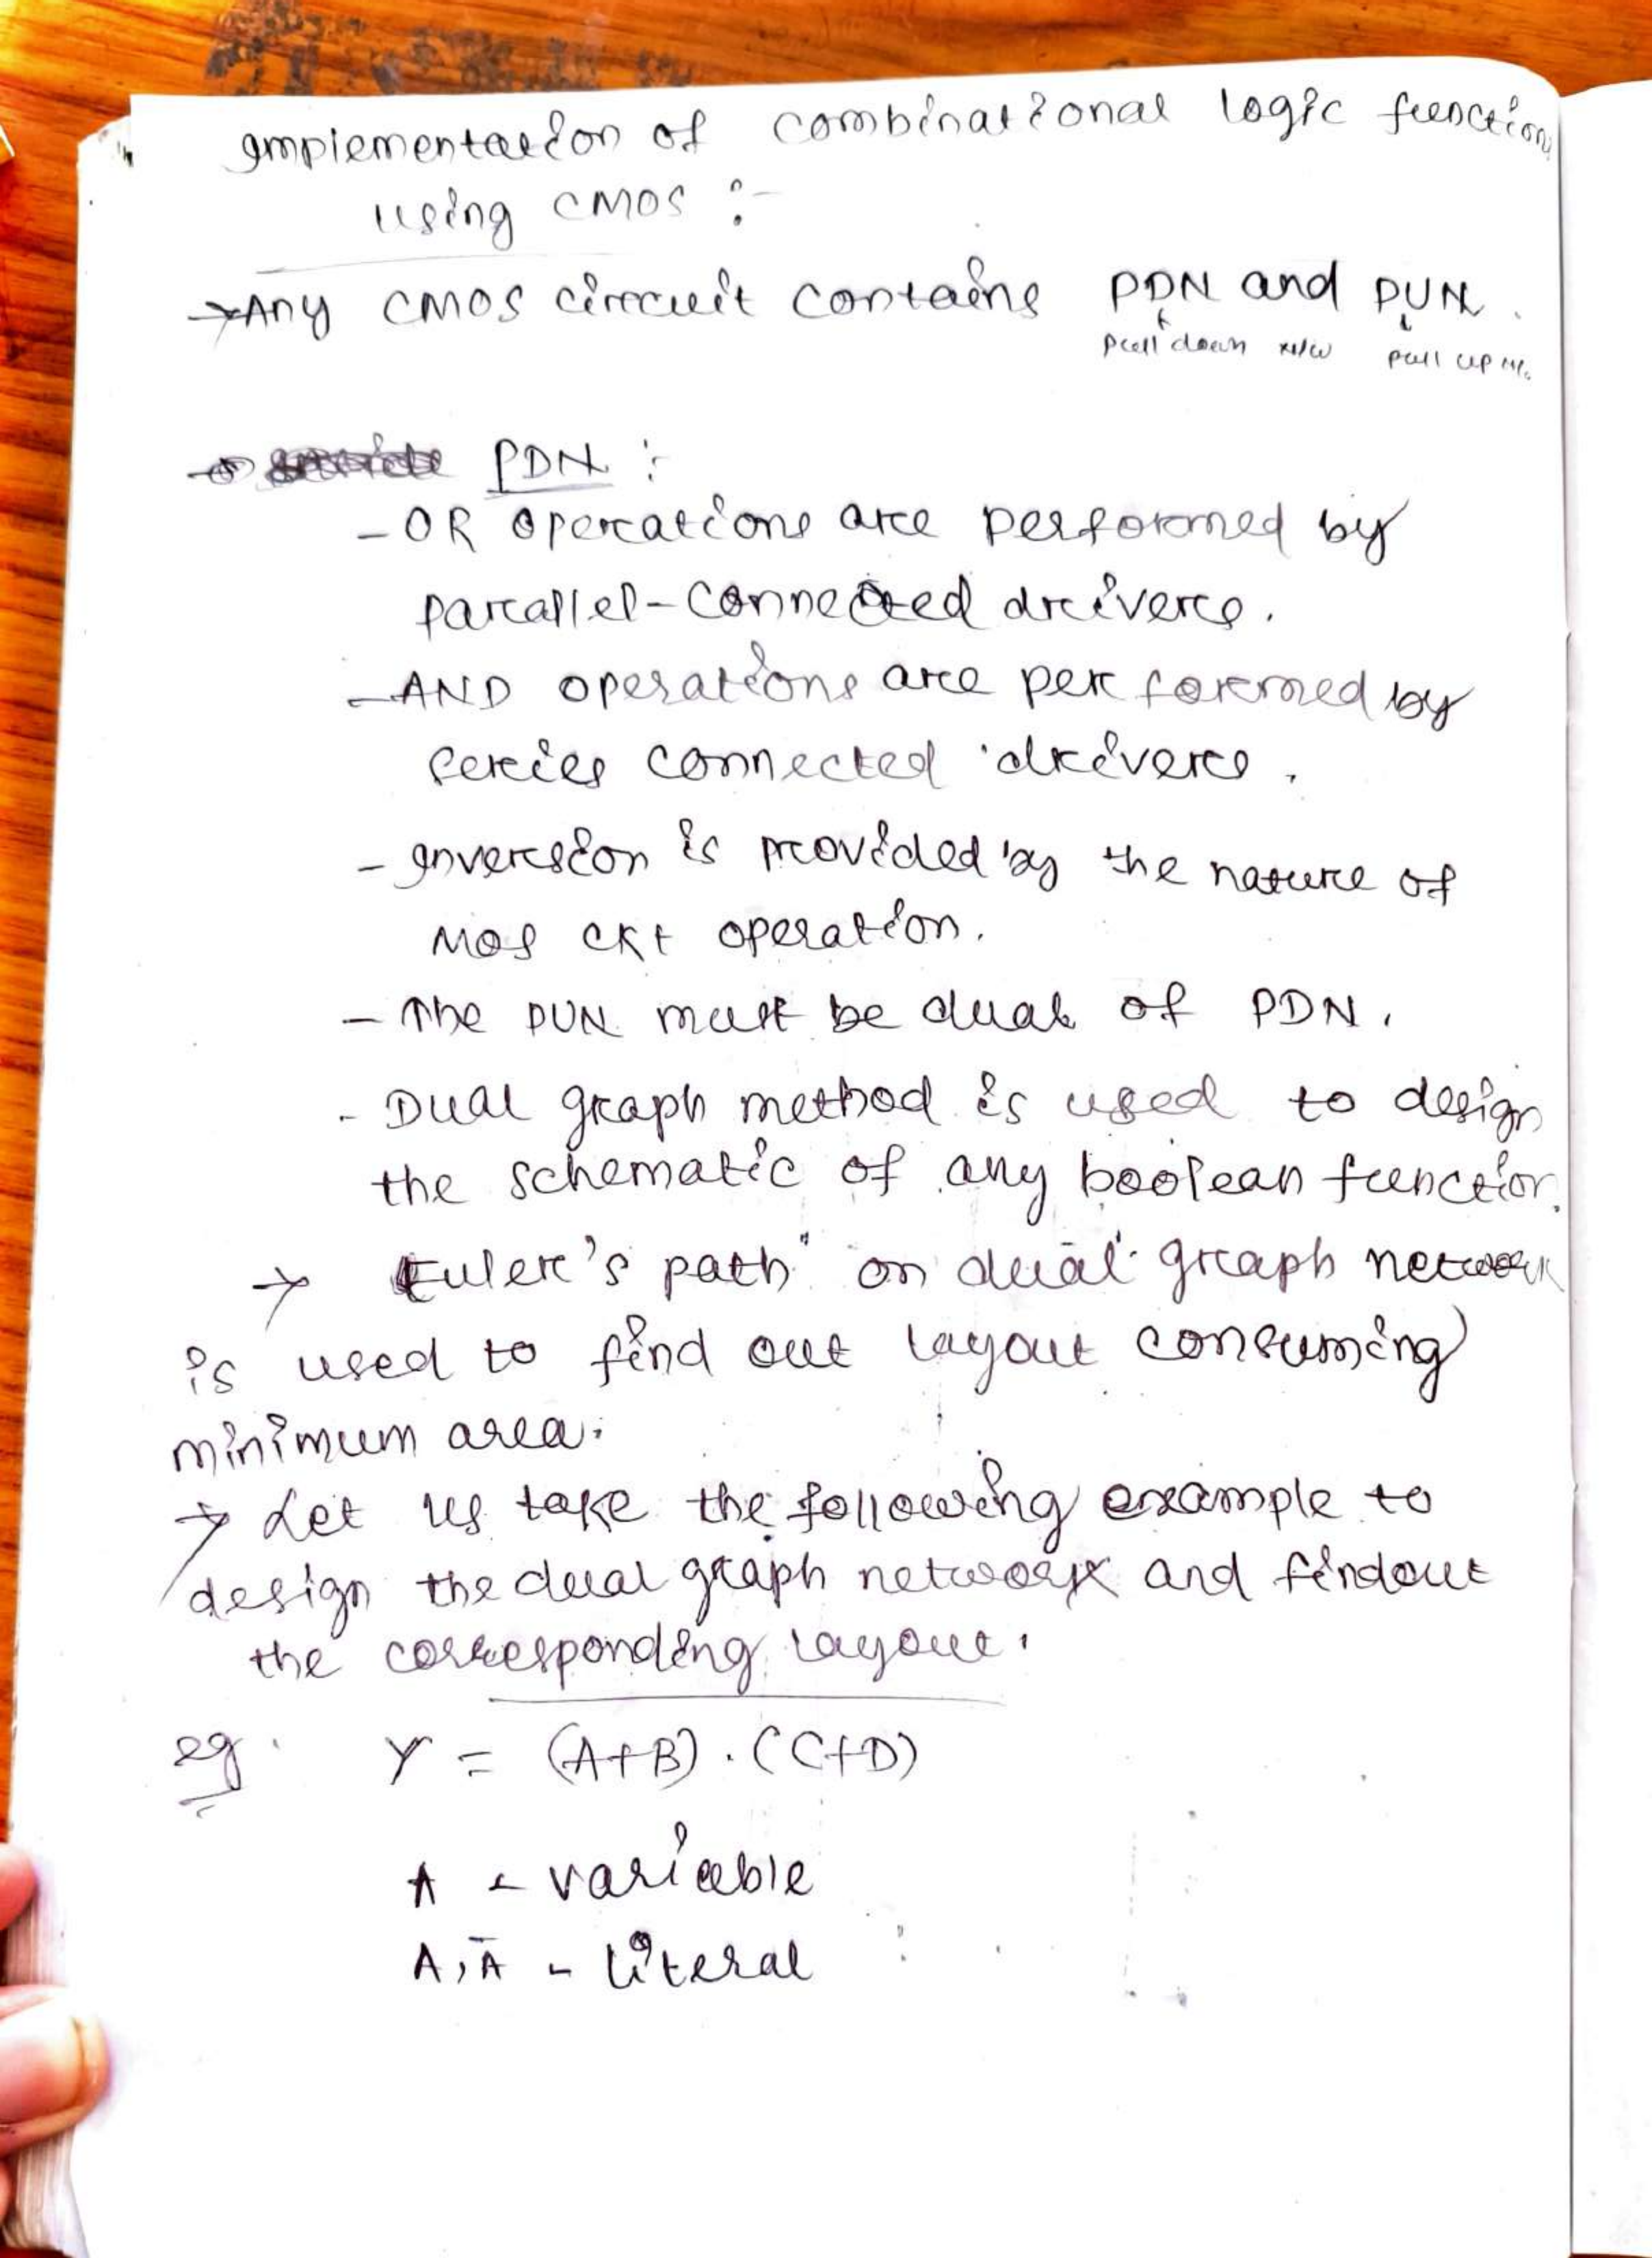 Implementation of combinational logic function
using CMOS :-
→ Any CMOS circuit contains PDN and PUN.
pull down n/w pull up n/w
PDN :
- OR operations are performed by
parallel-connected drivers.
- AND operations are performed by
series connected drivers.
- Inversion is provided by the nature of
MOS ckt operation.
- The PUN must be dual of PDN.
- Dual graph method is used to design
the schematic of any boolean function.
→ Euler's path on dual graph network
is used to find out layout consuming
minimum area.
→ Let us take the following example to
design the dual graph network and findout
the corresponding layout.
eg. Y = (A+B).(C+D)
A - variable
A, Ā - literal